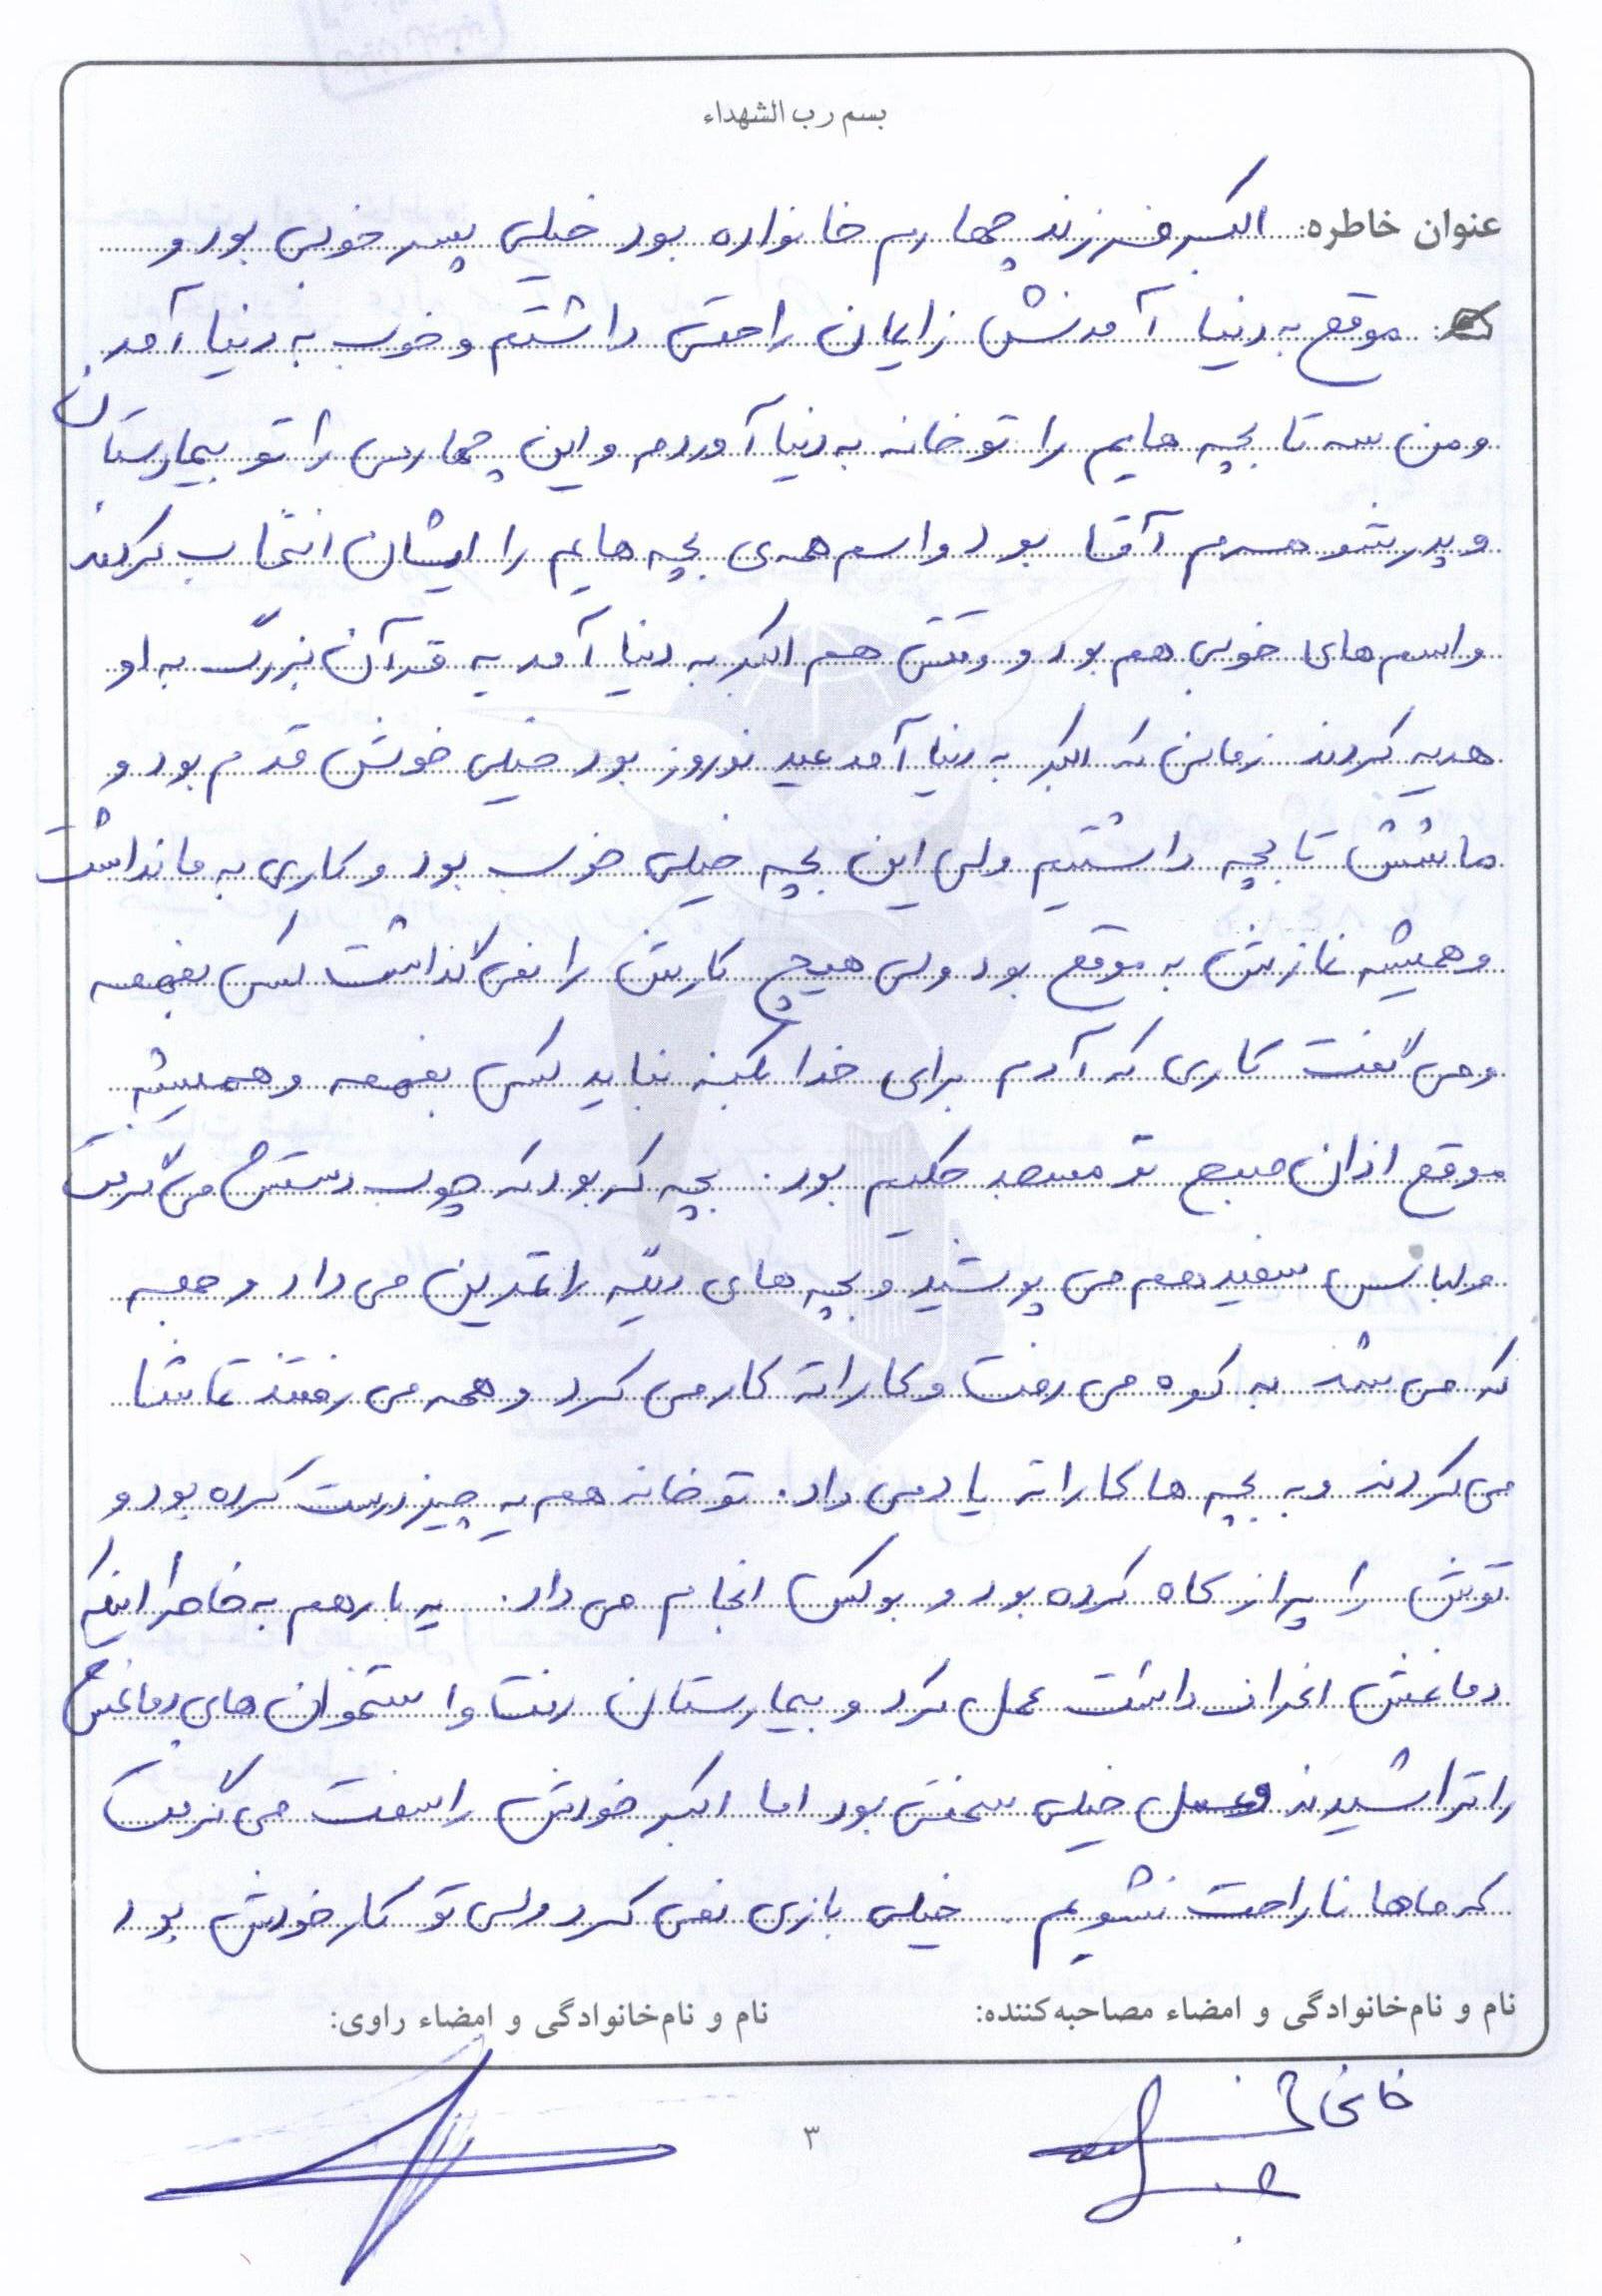 بسم رب الشهداء
عنوان خاطره: اکبر فرزند چهارم خانواده بود خیلی پسر خوبی بود و
موقع به دنیا آمدنش زایمان راحتی داشتم و خوب به دنیا آمد
و من سه تا بچه هایم را تو خانه به دنیا آوردم و این چهارمی را تو بیمارستان
و پدر شوهرم آقا بود و اسم همه ی بچه هایم را ایشان انتخاب کردند
و اسم های خوبی هم بود و وقتی هم اکبر به دنیا آمد یه قرآن بزرگ به او
هدیه کردند زمانی که اکبر به دنیا آمد عید نوروز بود خیلی خوش قدم بود و
ما شش تا بچه داشتیم ولی این بچه خیلی خوب بود و کاری به ما نداشت
و همیشه نمازش به موقع بود ولی هیچ کارش را نمی گذاشت کسی بفهمه
و می گفت کاری که آدم برای خدا بکنه نباید کسی بفهمه و همیشه
موقع اذان صبح تو مسجد حکیم بود. بچه که بود که چوب دستش می گرفت
و لباس سفید هم می پوشید و بچه های دیگه را تمرین می داد و جمعه
که می شد به کوه می رفت و کاراته کار می کرد و همه می رفتند تماشا
می کردند و به بچه ها کاراته یاد می داد. تو خانه هم یه چیز درست کرده بود و
توش را پر از کاه کرده بود و بوکس انجام می داد. یه بار هم به خاطر اینکه
دماغش انحراف داشت عمل کرد و بیمارستان رفت و استخوان های دماغش
را تراشیدند و عمل خیلی سختی بود اما اکبر خودش را سفت می گرفت
که ماها ناراحت نشویم. خیلی بازی نمی کرد ولی تو کار خودش بود
نام و نام خانوادگی و امضاء مصاحبه کننده:
نام و نام خانوادگی و امضاء راوی:
۳